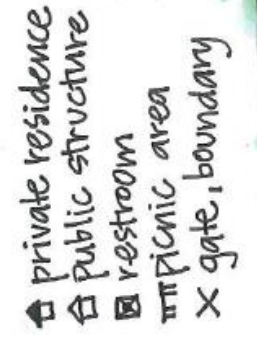 private residence
Public structure
restroom
picnic area
X gate, boundary